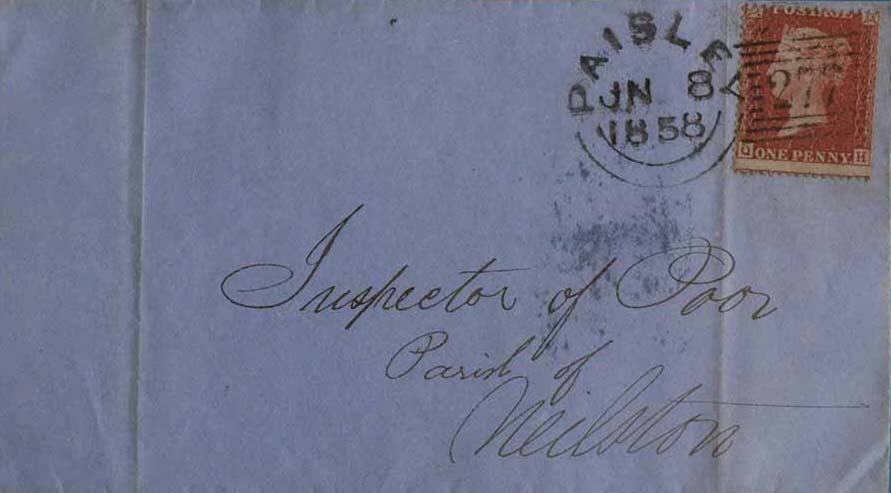 POSTAGE
PAISLEY
JN 8
1858
277
Q H
ONE PENNY
Inspector of Poor
Parish of
Neilston